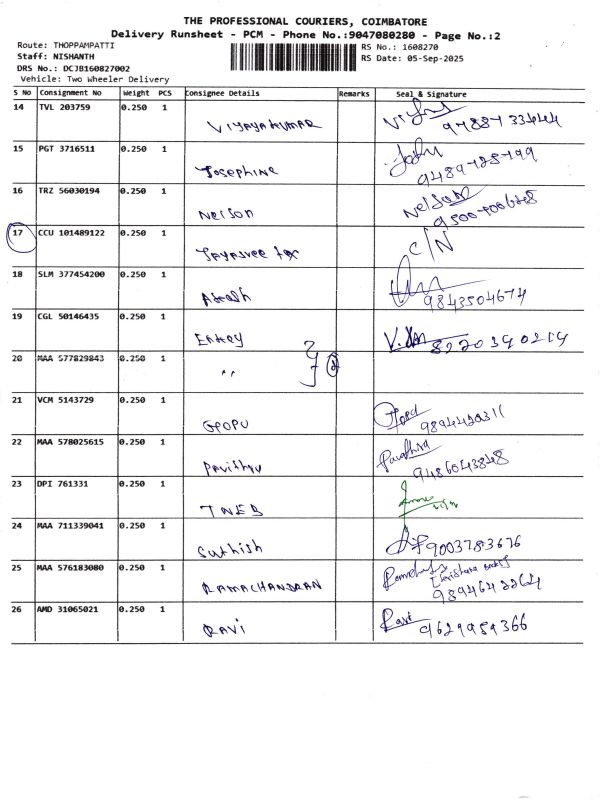 THE PROFESSIONAL COURIERS, COIMBATORE
Delivery Runsheet - PCM - Phone No.:9047080280 - Page No.:2
Route: THOPPAMPATTI
Staff: NISHANTH
DRS No.: DCJB160827002
Vehicle: Two Wheeler Delivery
RS No.: 1608270
RS Date: 05-Sep-2025
S No Consignment No Weight PCS Consignee Details Remarks Seal & Signature
14 TVL 203759 0.250 1
VIJAYAKUMAR
15 PGT 3716511 0.250 1
Josephine 9489728799
16 TRZ 56030194 0.250 1
Nelson Nelson 9500700628
17 CCU 101489122 0.250 1
Jayasree C/N
18 SLM 377454200 0.250 1
9843504674
19 CGL 50146435 0.250 1
8220390214
20 MAA 577829843 0.250 1
,, 2
21 VCM 5143729 0.250 1
GOPU
22 MAA 578025615 0.250 1
Pavithra 9486043848
23 DPI 761331 0.250 1
TNEB
24 MAA 711339041 0.250 1
Suthish 9003783676
25 MAA 576183080 0.250 1
RAMACHANDRAN
26 AMD 31065021 0.250 1
RAVI Ravi 9629959366